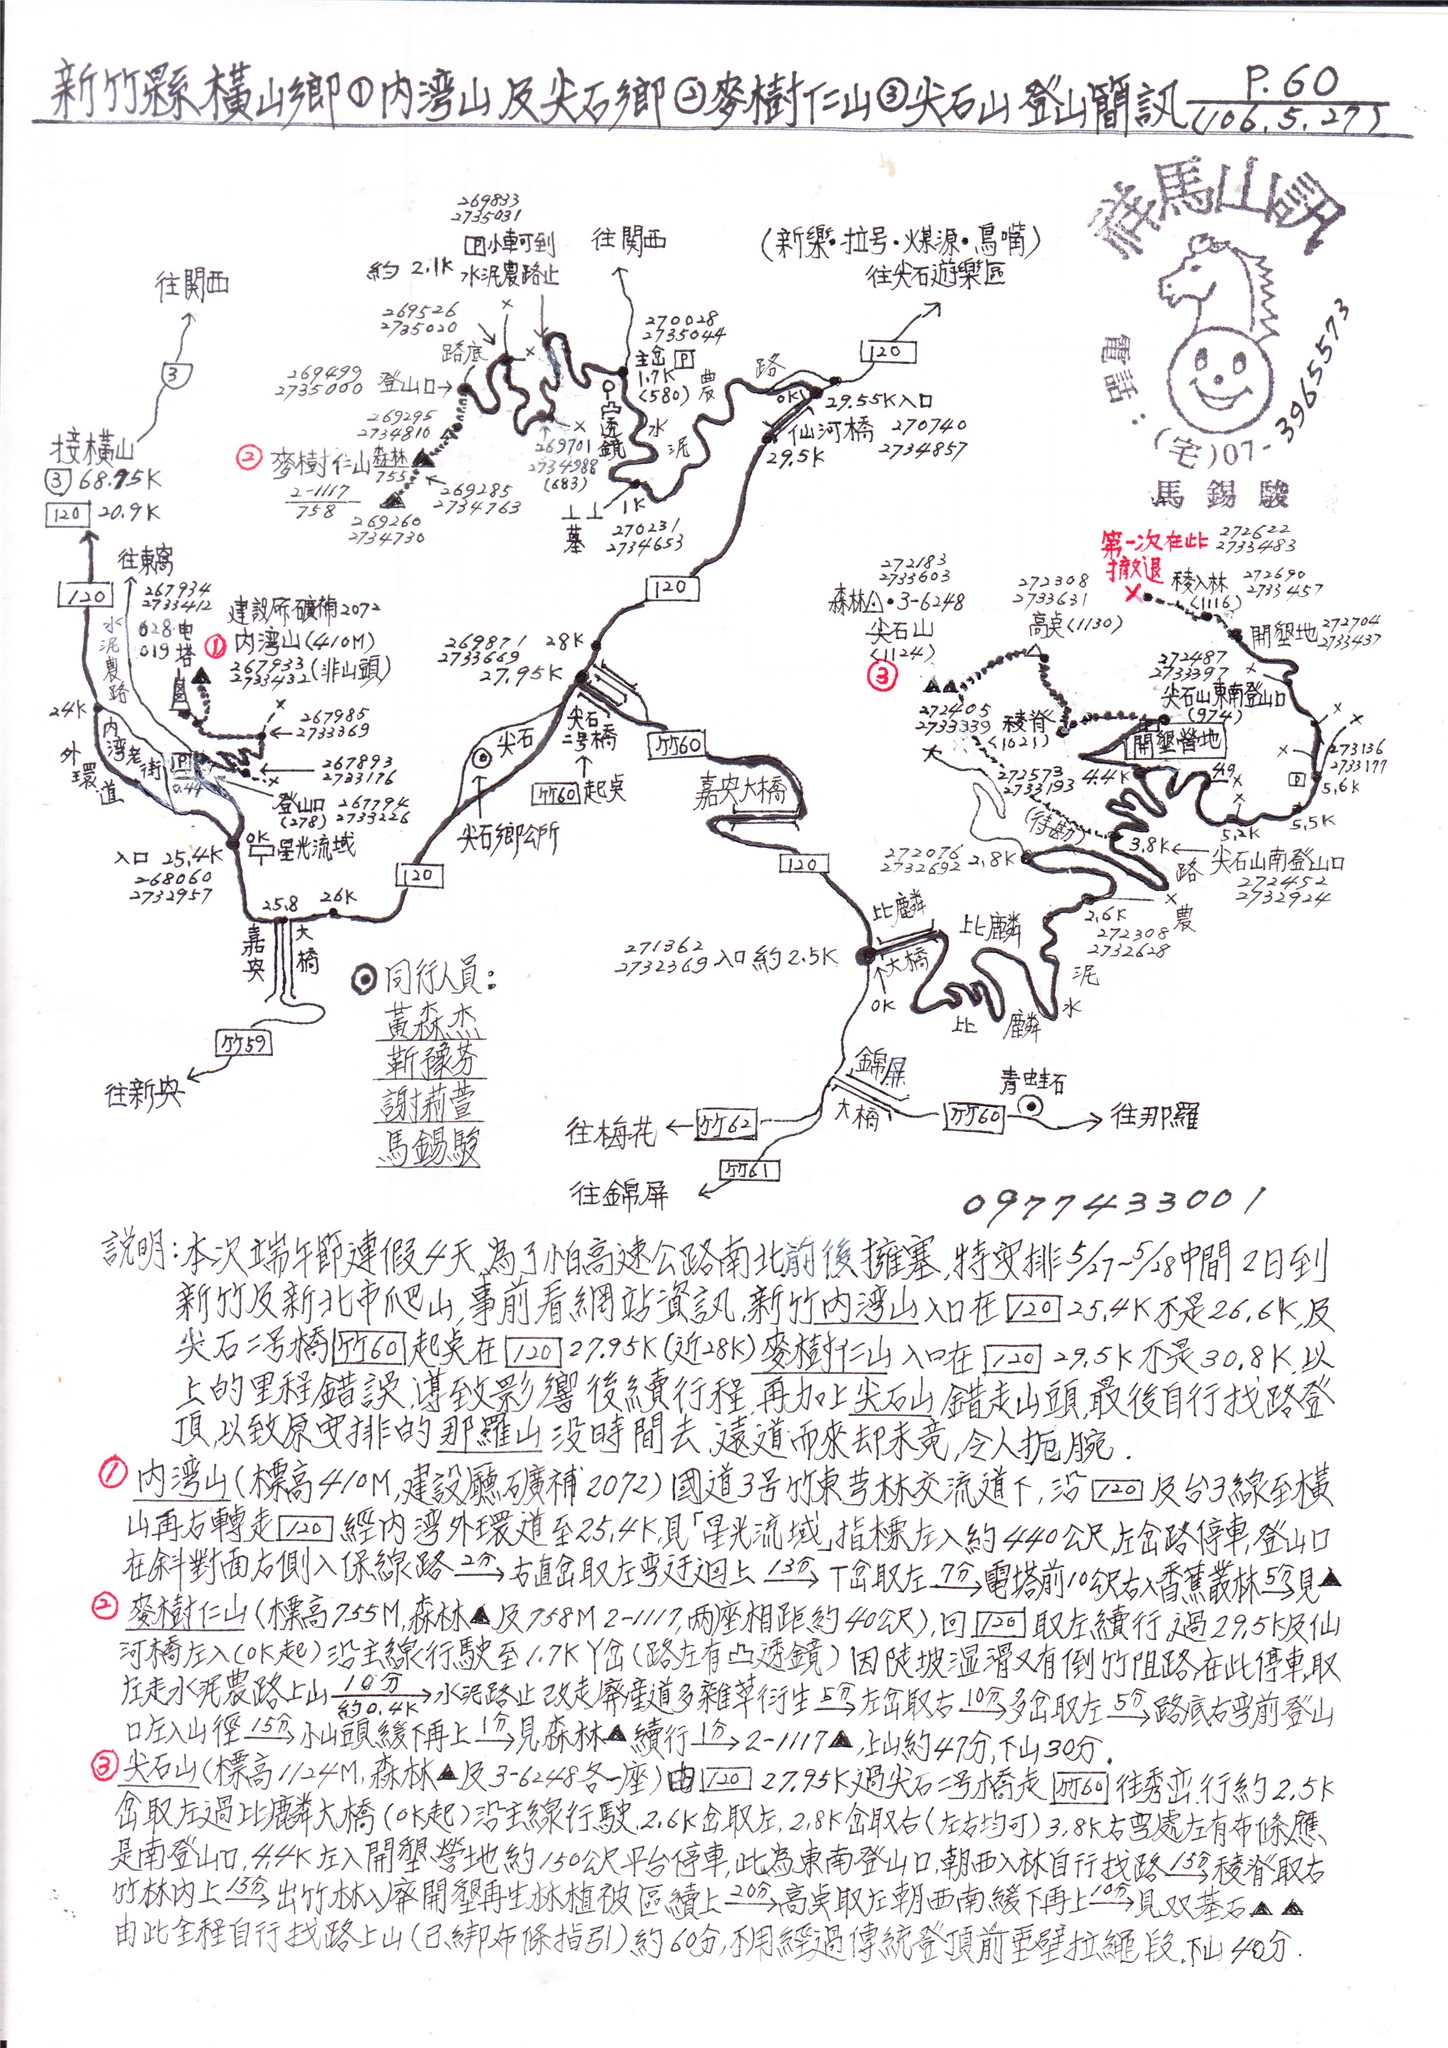 新竹縣橫山鄉①內湾山及尖石鄉②麥樹仁山③尖石山登山簡訊
P.60
(106.5.27)
祥馬山訊
電話：(宅)07-3965573
馬錫駿
269833
2735031
P小車可到
水泥農路止
約 2.1K
往関西
(新樂·拉号·煤源·鳥嘴)
往尖石遊樂區
往関西
3
269526
2735020
路底
270028
2735044
主岔 P
1.7K
(580)
農
路
120
269499
2735060
登山口
0K
29.55K入口
凸透鏡
水
泥
仙河橋
270740
2734857
29.5K
269295
2734810
接橫山
③ 68.95K
120 20.9K
② 麥樹仁山
森林
755
2-1117
758
269701
2734988
(683)
269285
2734763
269260
2734730
1K
墓
270231
2734653
120
往東窩
267934
2733412
028电
019塔
水泥農路
120
建設所石礦補2072
① 內湾山(410M)
267933(非山頭)
2733432
269871
2733669
28K
27.95K
24K
內湾老街
外環道
267985
2733369
P
0.44
267893
2733176
登山口
(278)
267794
2733226
尖石
尖石二号橋
竹60起点
尖石鄉公所
竹60
嘉央大橋
0K
星光流域
入口 25.4K
268060
2732957
25.8
26K
120
嘉央
大橋
竹59
往新央
120
第一次在此
撤退
272622
2733483
稜入林
(1116)
272690
2733457
開墾地
272704
2733437
272183
2733603
森林△·3-6248
尖石山
(1124)
③
272308
2733631
高点(1130)
272487
2733397
尖石山東南登山口
(974)
開墾營地
272405
2733339
稜脊
(1021)
272573
2733193
(待勘)
4.4K
4.9
273136
2733177
P
5.6K
5.5K
5.2K
3.8K
尖石山南登山口
272452
2732924
272076
2732692
2.8K
路
農
2.6K
272308
2732628
泥
水
271362
2732369
入口約2.5K
比麟
大橋
0K
比麟
比麟
錦屏
大橋
青蛙石
竹60
往那羅
往梅花
竹62
竹61
往錦屏
◎同行人員：
黃森杰
靳豫芬
謝莉萱
馬錫駿
0977433001
說明：本次端午節連假4天,為了怕高速公路南北前後擁塞,特安排5/27~5/28中間2日到
新竹及新北市爬山,事前看網站資訊,新竹內湾山入口在120 25.4K不是26.6K,及
尖石二号橋竹60起点在120 27.95K(近28K)麥樹仁山入口在120 29.5K不是30.8K,以
上的里程錯誤,導致影響後續行程,再加上尖石山錯走山頭,最後自行找路登
頂,以致原安排的那羅山没時間去,遠道而來却未竟,令人扼腕.
①內湾山(標高410M,建設廳石礦補2072)國道3号竹東芎林交流道下,沿120及台3線至橫
山再右轉走120經內湾外環道至25.4K,見「星光流域」指標左入約440公尺,左岔路停車,登山口
在斜對面右側入保線路2分→右直岔取左弯迂迴上13分→丁岔取左7分→電塔前10公尺右入香蕉叢林5分見▲
②麥樹仁山(標高755M,森林▲及758M 2-1117,兩座相距約40公尺),回120取左續行,過29.5K及仙
河橋左入(0K起)沿主線行駛至1.7K丫岔(路左有凸透鏡)因陡坡溼滑又有倒竹阻路,在此停車,取
左走水泥農路上山10分約0.4K→水泥路止改走廢產道多雜草衍生5分→左岔取右10分→多岔取左5分→路底右弯前登山
口左入山徑15分→小山頭緩下再上1分→見森林▲續行1分→2-1117▲,上山約47分,下山30分.
③尖石山(標高1124M,森林▲及3-6248各一座)由120 27.95K過尖石二号橋走竹60往秀峦行約2.5K
岔取左過比麟大橋(0K起)沿主線行駛,2.6K岔取左,2.8K岔取右(左右均可)3.8K右弯處左有布條應
是南登山口,4.4K左入開墾營地約150公尺平台停車,此為東南登山口,朝西入林自行找路15分→稜脊取右
竹林內上15分→出竹林入廢開墾再生林植被區續上20分→高点取左朝西南緩下再上10分→見双基石▲▲
由此全程自行找路上山(已綁布條指引)約60分,不用經過傳統登頂前垂壁拉繩段.下山40分.